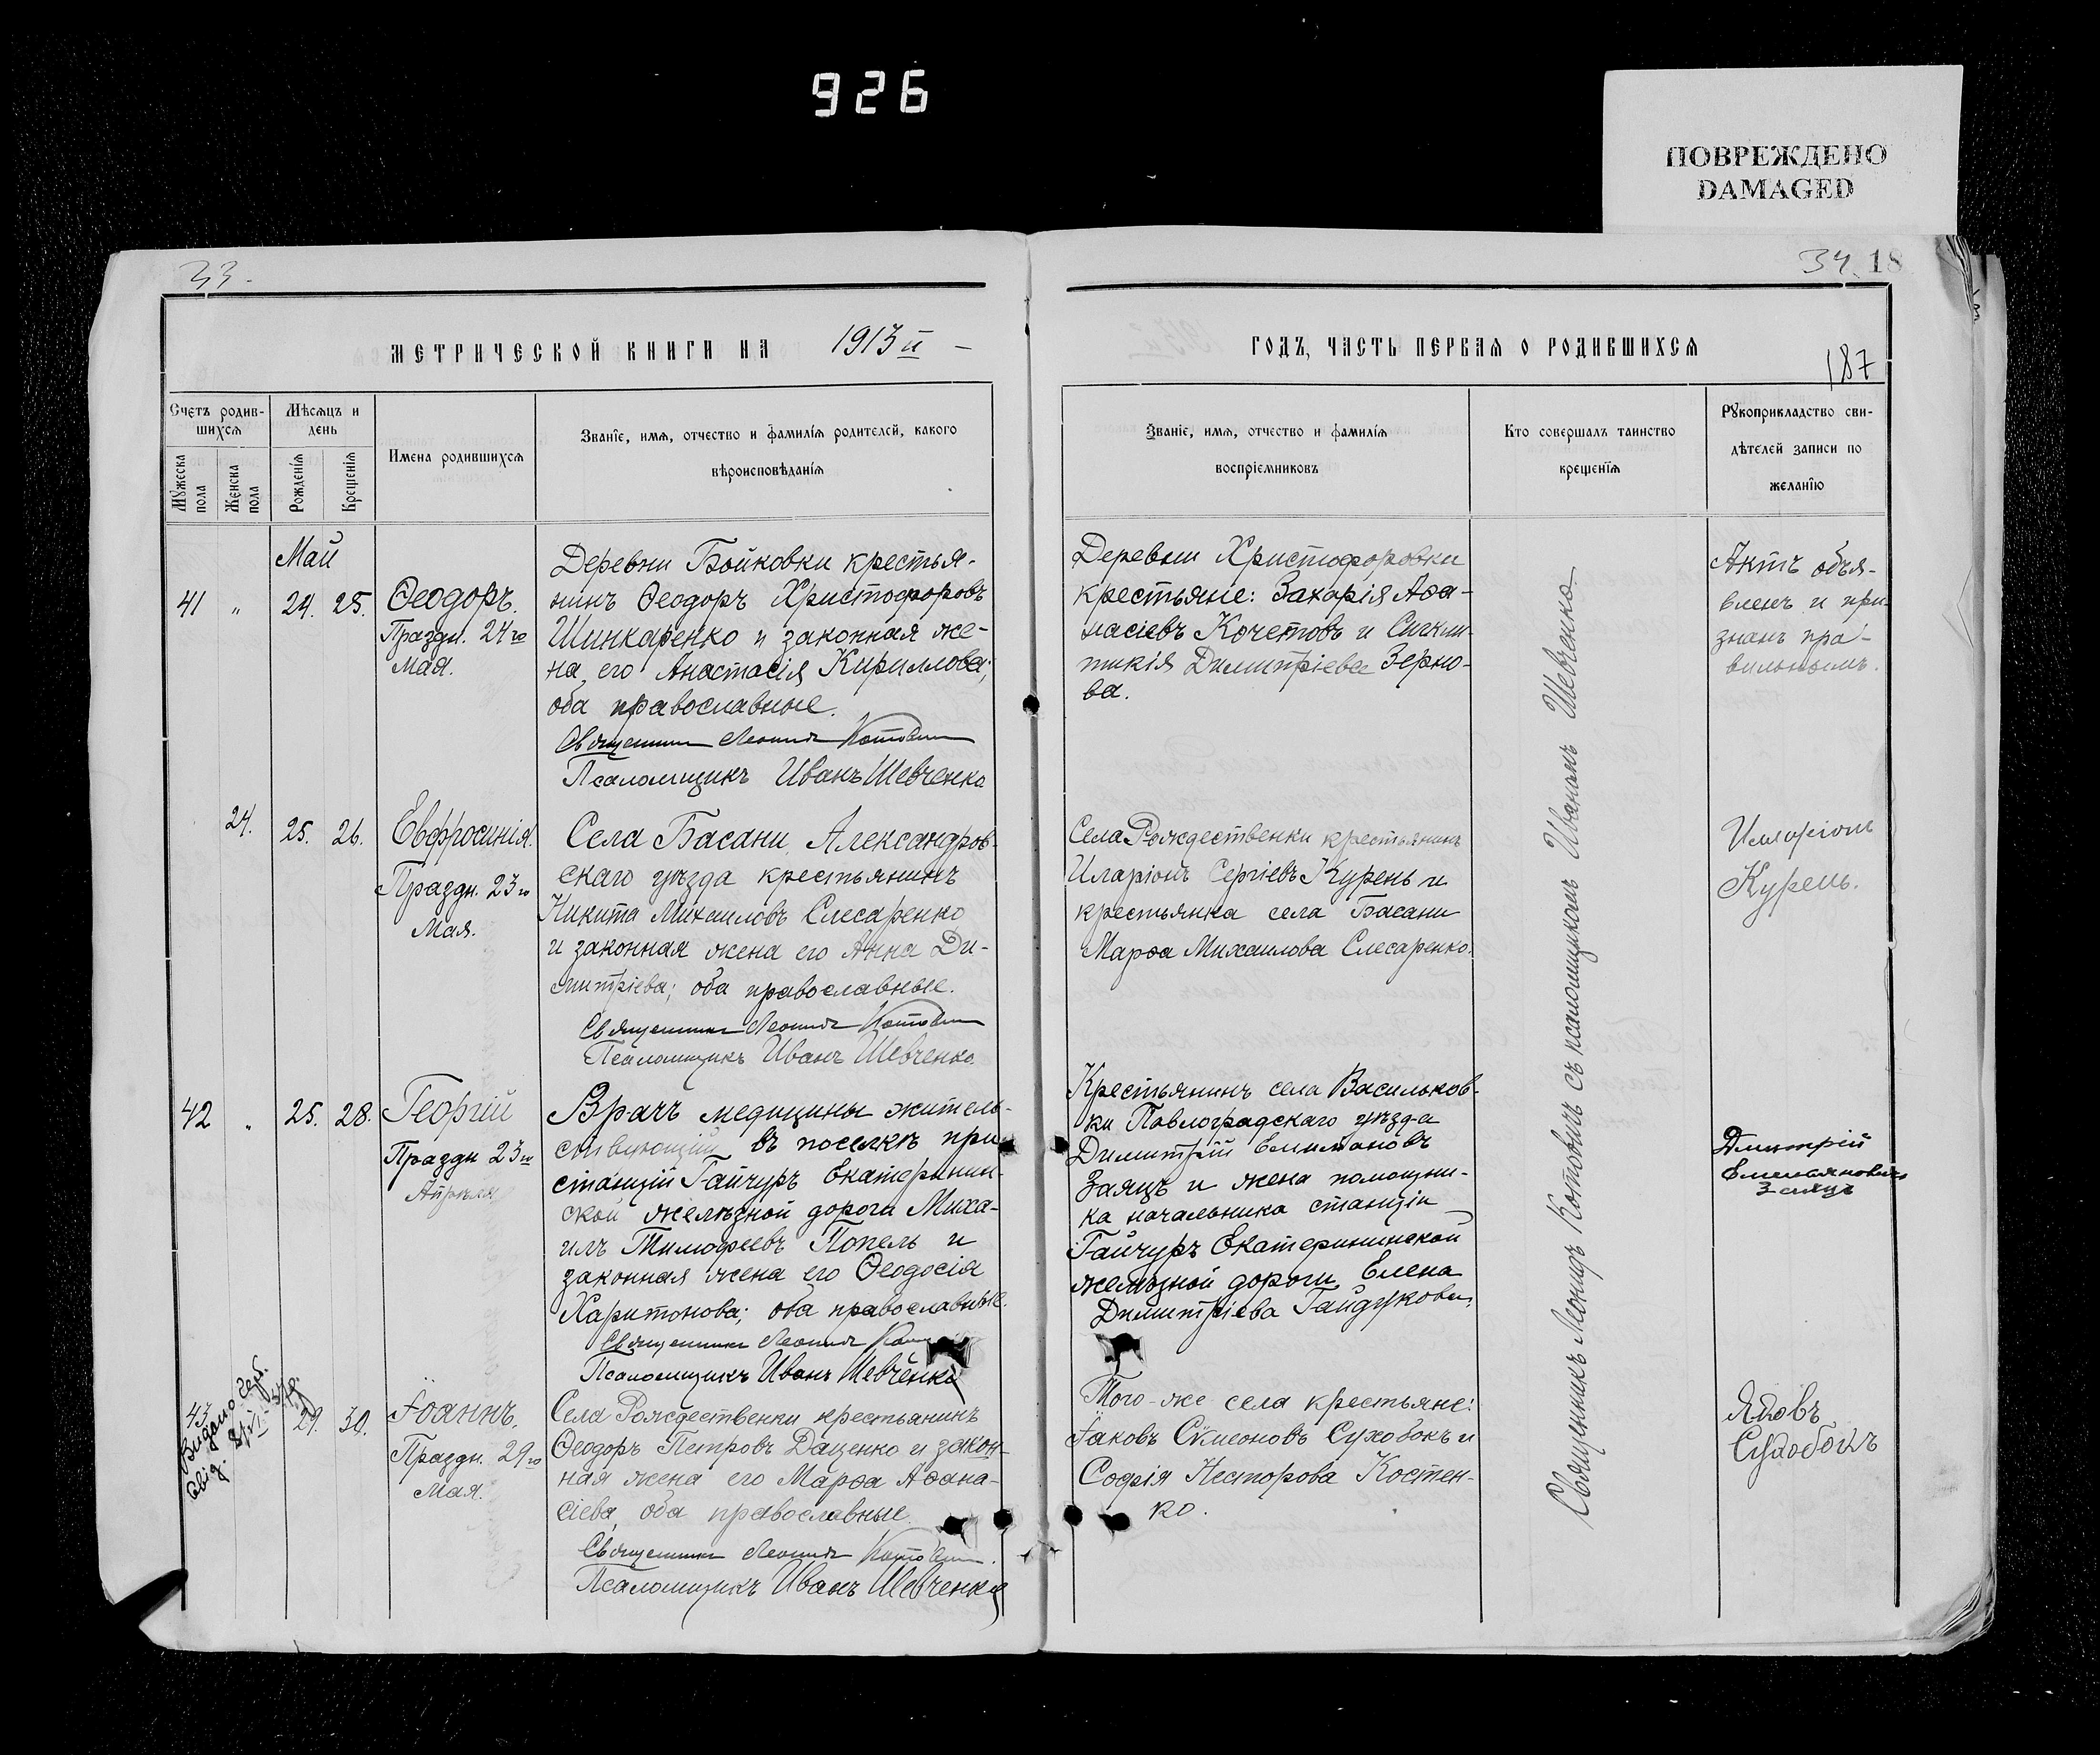 926
ПОВРЕЖДЕНО
DAMAGED
33.
34.
18
МЕТРИЧЕСКОЙ КНИГИ НА 1913й
ГОДЪ, ЧАСТЬ ПЕРВАЯ О РОДИВШИХСЯ
187
Счетъ родив-
шихся
Мужеска пола
Женска пола
Мѣсяцъ и
день
Рожденія
Крещенія
Имена родившихся
Званіе, имя, отчество и фамилія родителей, какого
вѣроисповѣданія
Званіе, имя, отчество и фамилія
воспріемниковъ
Кто совершалъ таинство
крещенія
Рукоприкладство сви-
дѣтелей записи по
желанію
Май
41 " 24. 25.
Ѳеодоръ.
Праздн. 24го
мая.
Деревни Бойковки крестья-
нинъ Ѳеодоръ Христофоровъ
Шинкаренко и законная же-
на его Анастасія Кириллова;
оба православные.
Священникъ Леонидъ Котовичъ
Псаломщикъ Иванъ Шевченко
Деревни Христофоровки
крестьяне: Захарія Аѳа-
насіевъ Кочетовъ и Синкли-
тикія Димитріева Зерно-
ва.
Актъ объя-
вленъ и при-
знанъ пра-
вильнымъ.
24. 25. 26.
Евфросинія.
Праздн. 23го
Мая.
Села Басани, Александров-
скаго уѣзда крестьянинъ
Никита Михаиловъ Слесаренко
и законная жена его Анна Ди-
митріева; оба православные.
Священникъ Леонидъ Котовичъ
Псаломщикъ Иванъ Шевченко
Села Рождественки крестьянинъ
Иларіонъ Сергіевъ Курень и
крестьянка села Басани
Марѳа Михаилова Слесаренко.
Иларіонъ
Курень.
42 " 25. 28.
Георгій
Праздн 23го
Апрѣля
Врачъ медицины житель-
ствующій въ поселкѣ при
станціи Гайчуръ Екатеринин-
ской желѣзной дороги Миха-
илъ Тимофеевъ Попель и
законная жена его Ѳеодосія
Харитонова; оба православные.
Священникъ Леонидъ
Псаломщикъ Иванъ Шевченко
Крестьянинъ села Васильков-
ки Павлоградскаго уѣзда
Димитрій Емиліановъ
Заяцъ и жена помощни-
ка начальника станціи
Гайчуръ Екатерининской
желѣзной дороги Елена
Димитріева Гайдукова.
Дмитрій
Емельяновичъ
Заяцъ
43 29. 30.
Видано
свід.
Іоаннъ.
Праздн. 29го
Мая.
Села Рождественки крестьянинъ
Ѳеодоръ Петровъ Даценко и закон-
ная жена его Марѳа Аѳана-
сіева, оба православные.
Священникъ Леонидъ Котовичъ.
Псаломщикъ Иванъ Шевченко
Того-же села крестьяне:
Іаковъ Сѵмеоновъ Сухобокъ и
Софія Несторова Костен-
ко.
Яковъ
Сухобокъ
Священникъ Леонидъ Котовичъ съ псаломщикомъ Иваномъ Шевченко